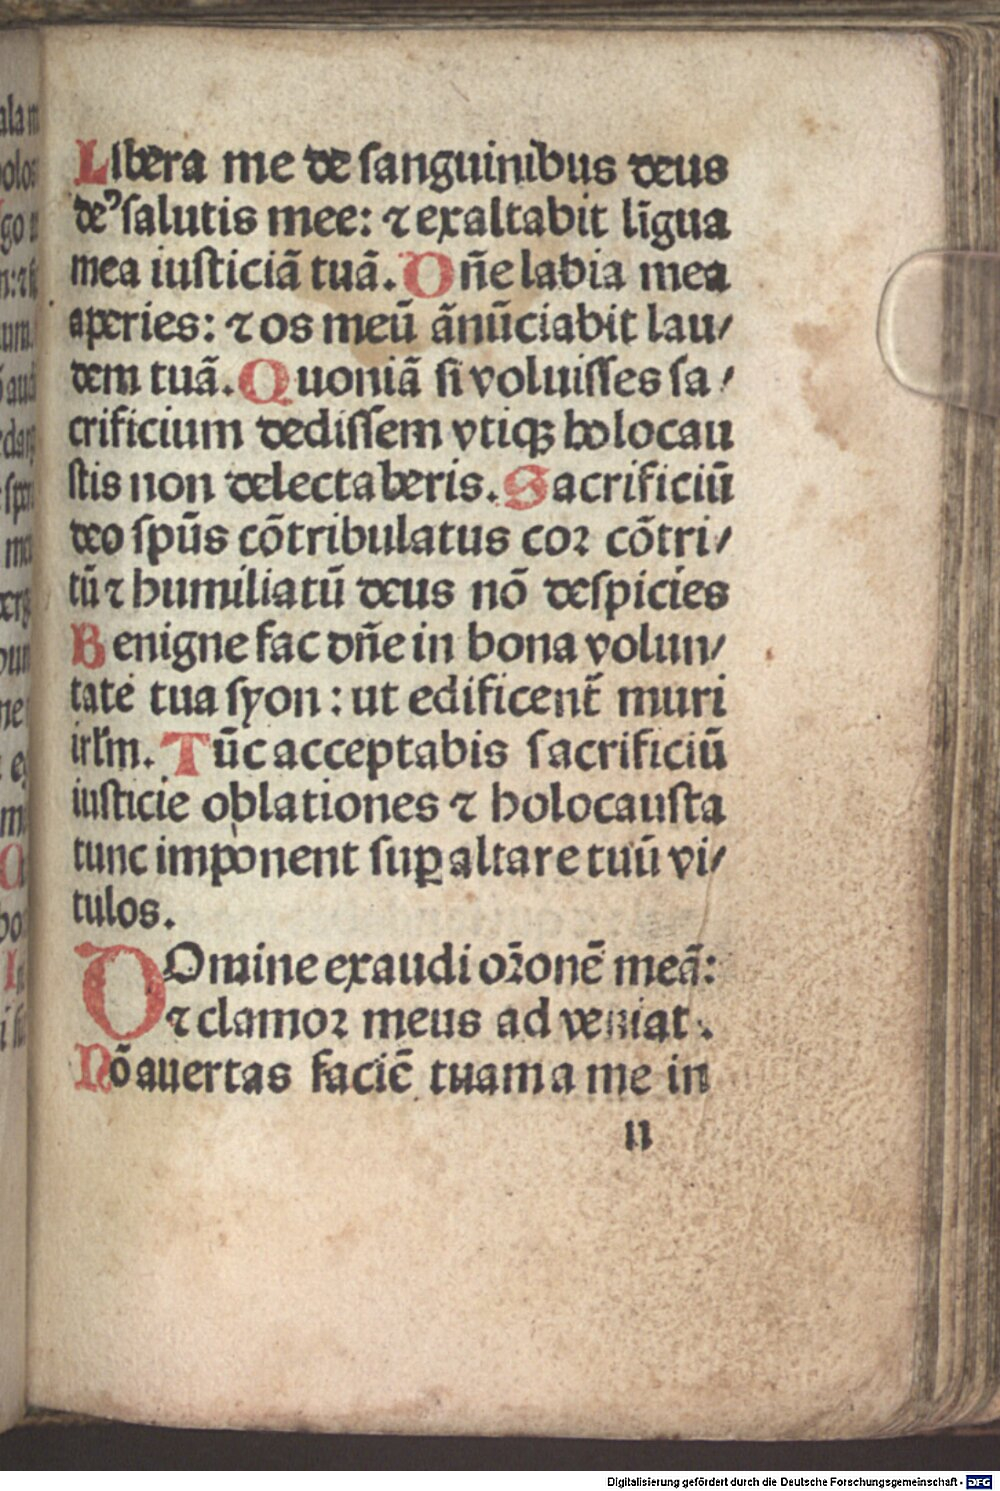 Libera me de sanguinibus deus
deꝰ salutis mee: ⁊ exaltabit līgua
mea iusticiā tuā. Dn̄e labia mea
aperies: ⁊ os meū ānūciabit lau/
dem tuā. Quoniā si voluisses sa/
crificium dedissem vtiqꝫ holocau
stis non delectaberis. Sacrificiū
deo sp̄us cōtribulatus cor cōtri/
tū ⁊ humiliatū deus nō despicies
Benigne fac dn̄e in bona volun/
tate tua syon: ut edificent̄ muri
irlm̄. Tūc acceptabis sacrificiū
iusticie oblationes ⁊ holocausta
tunc imponent suꝑ altare tuū vi/
tulos.
DOmine exaudi or̄onē meā:
⁊ clamor meus ad veniat.
Nō auertas faciē tuam a me in
11
Digitalisierung gefördert durch die Deutsche Forschungsgemeinschaft - DFG